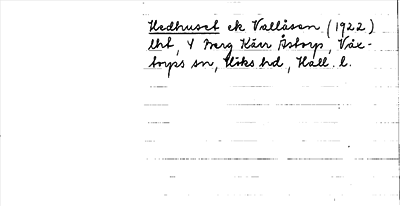 Hedhuset ek Vallåsen (1922)
lht, Y Berg Kärr Åstorp, Väx-
torps sn, Höks hd, Hall. l.